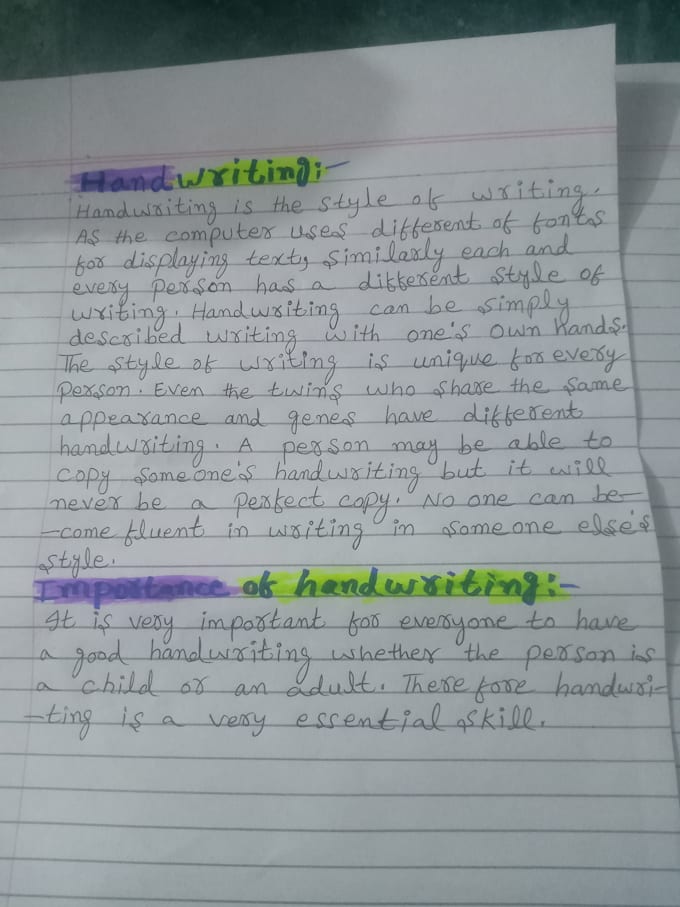 Handwriting:-
Handwriting is the style of writing.
As the computer uses different of fonts
for displaying text, similarly each and
every person has a different style of
writing. Handwriting can be simply
described writing with one's own hands.
The style of writing is unique for every
person. Even the twins who share the same
appearance and genes have different
handwriting. A person may be able to
copy someone's handwriting but it will
never be a perfect copy. No one can be-
-come fluent in writing in someone else's
style.
Importance of handwriting:-
It is very important for everyone to have
a good handwriting whether the person is
a child or an adult. Therefore handwri-
-ting is a very essential skill.